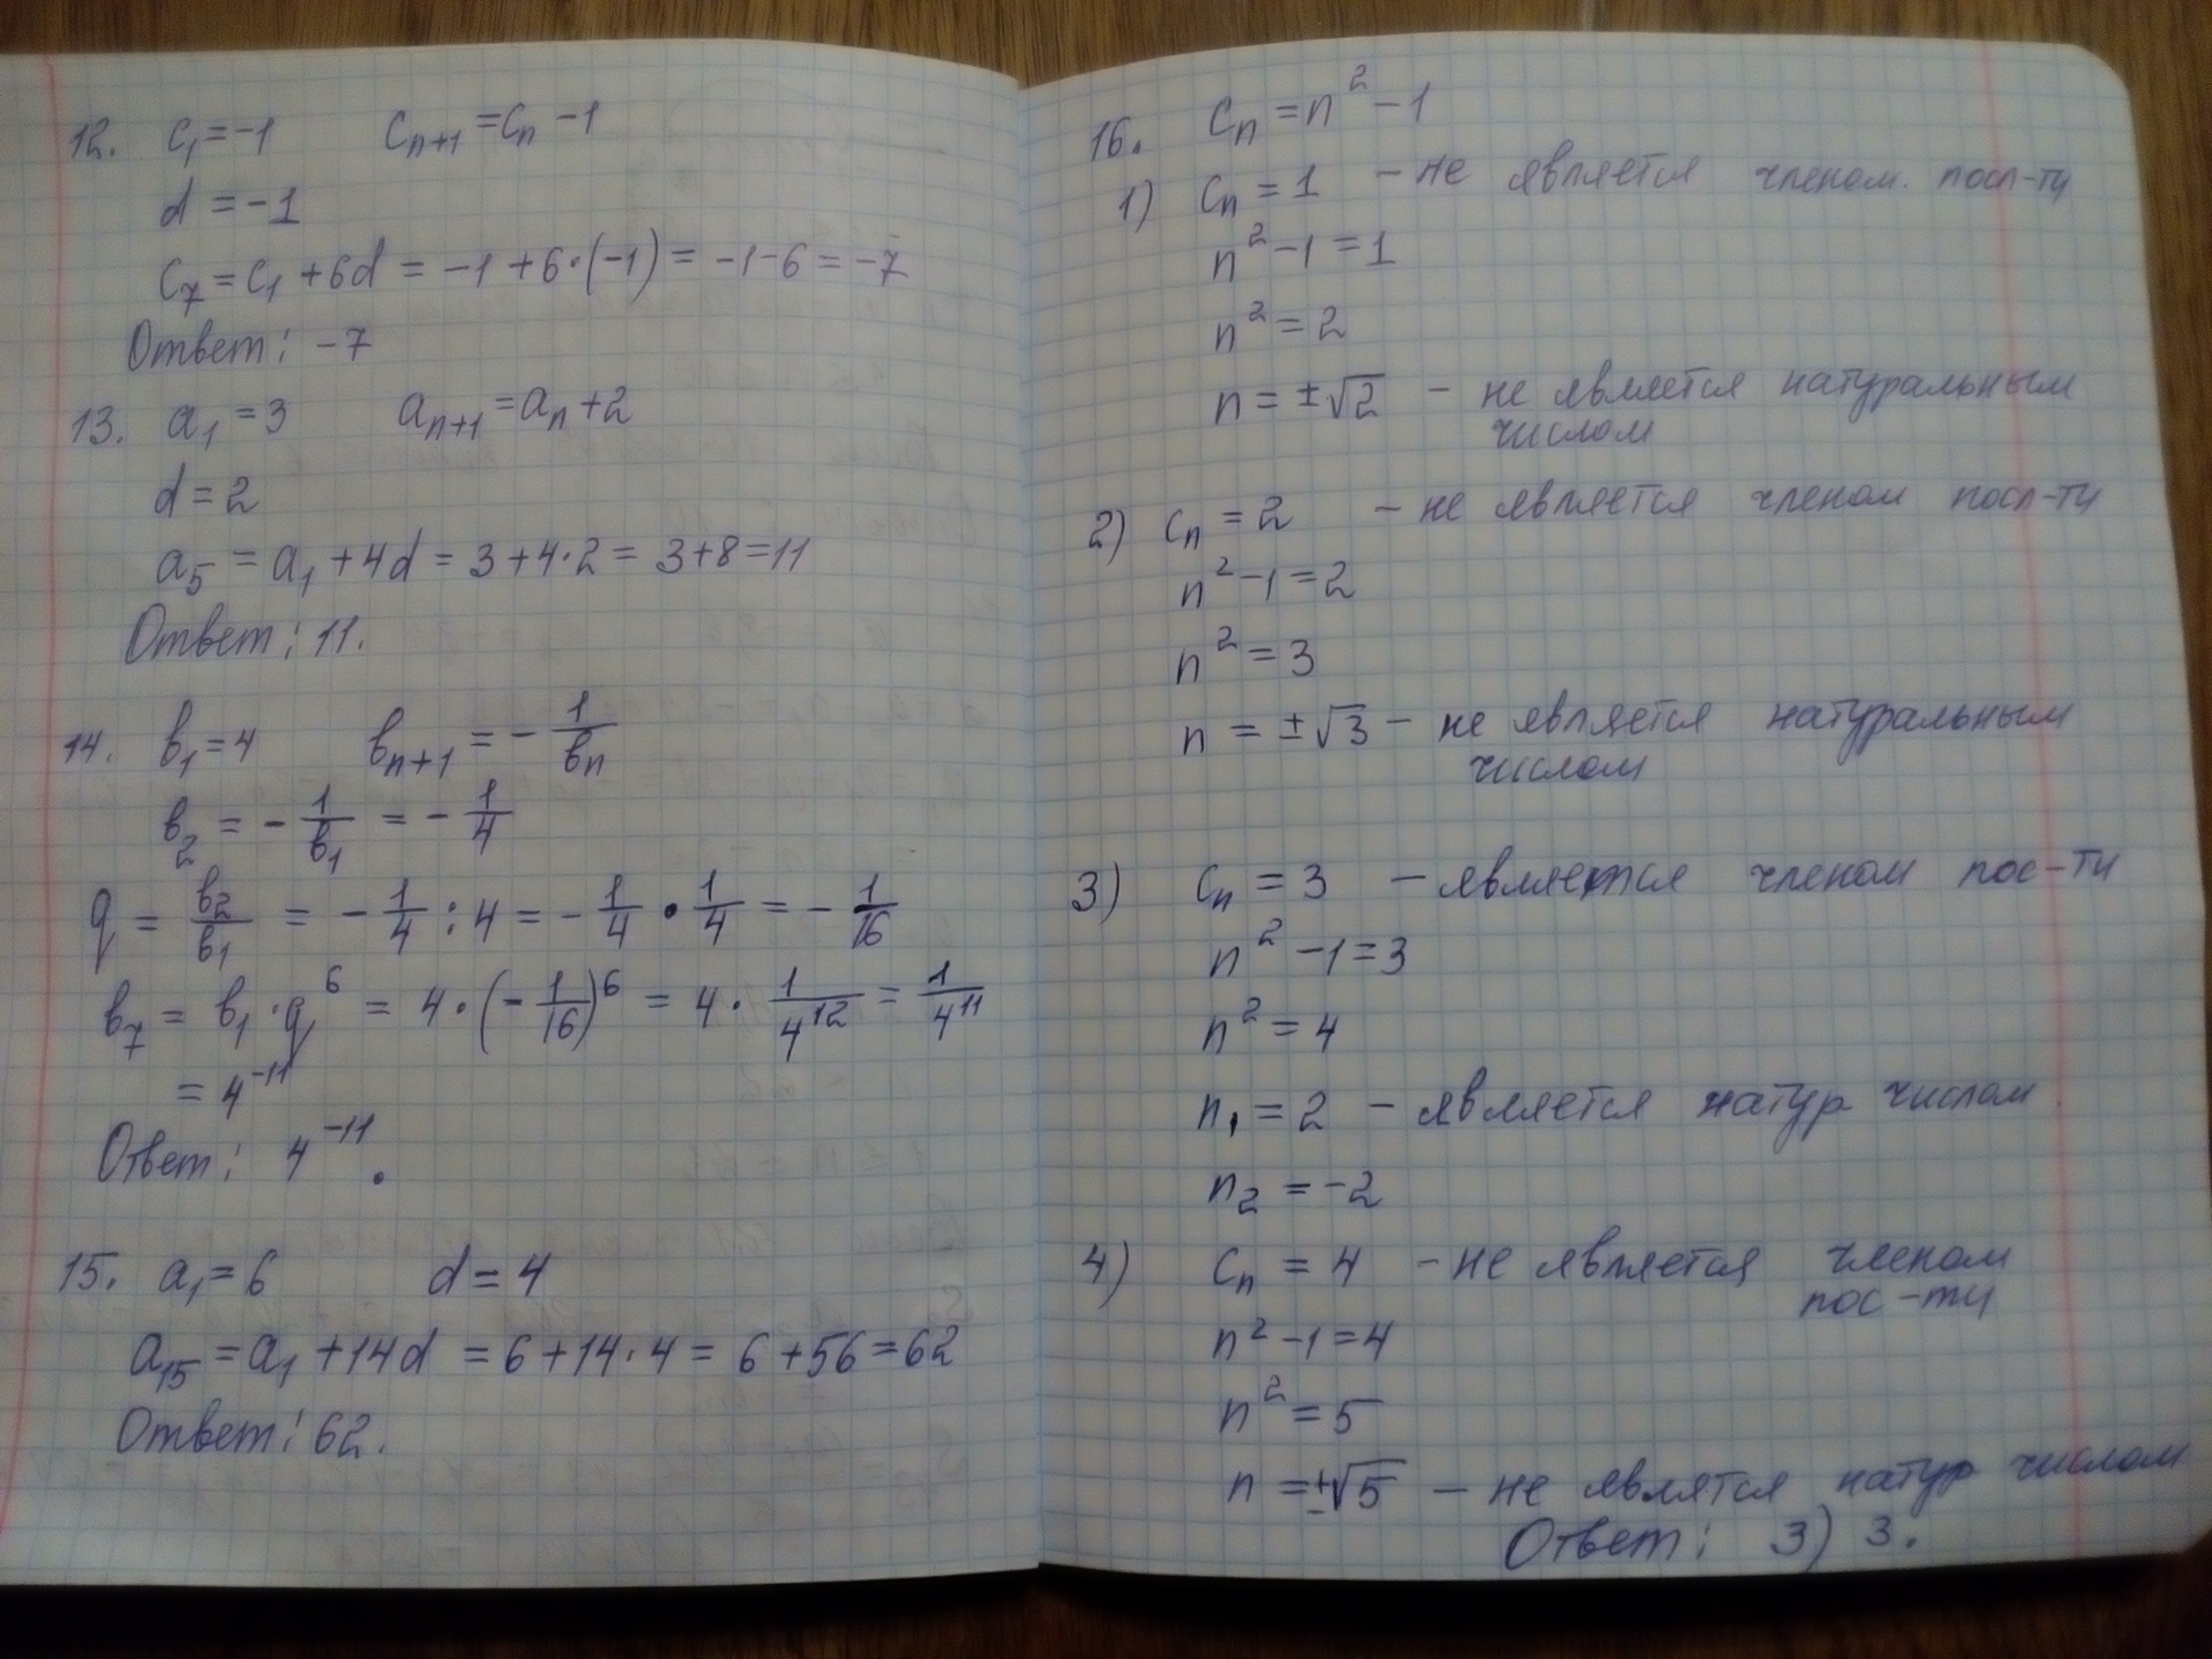 12. c₁ = -1    cₙ₊₁ = cₙ - 1
d = -1
c₇ = c₁ + 6d = -1 + 6·(-1) = -1 - 6 = -7
Ответ: -7
13. a₁ = 3    aₙ₊₁ = aₙ + 2
d = 2
a₅ = a₁ + 4d = 3 + 4·2 = 3 + 8 = 11
Ответ: 11.
14. в₁ = 4    вₙ₊₁ = - 1/вₙ
в₂ = - 1/в₁ = - 1/4
q = в₂/в₁ = - 1/4 : 4 = - 1/4 · 1/4 = - 1/16
в₇ = в₁ · q⁶ = 4 · (- 1/16)⁶ = 4 · 1/4¹² = 1/4¹¹
= 4⁻¹¹
Ответ: 4⁻¹¹.
15. a₁ = 6    d = 4
a₁₅ = a₁ + 14d = 6 + 14·4 = 6 + 56 = 62
Ответ: 62.
16. cₙ = n² - 1
1) cₙ = 1 - не является членом. посл-ти
n² - 1 = 1
n² = 2
n = ±√2 - не является натуральным
числом
2) cₙ = 2 - не является членом посл-ти
n² - 1 = 2
n² = 3
n = ±√3 - не является натуральным
числом
3) cₙ = 3 - является членом пос-ти
n² - 1 = 3
n² = 4
n₁ = 2 - является натур числом
n₂ = -2
4) cₙ = 4 - не является членом
пос-ти
n² - 1 = 4
n² = 5
n = ±√5 - не являтся натур числом
Ответ: 3) 3.